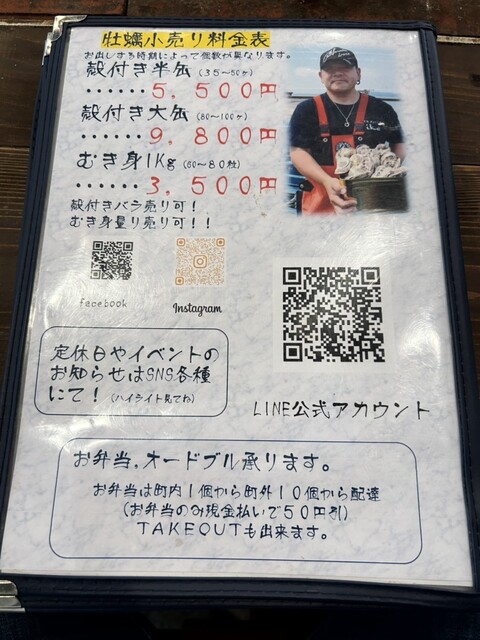 牡蠣小売り料金表
お出しする時期によって個数が異なります。
殻付き半缶(35〜50ヶ)
・・・・・・5,500円
殻付き大缶(80〜100ヶ)
・・・・・・9,800円
むき身1Kg(60〜80粒)
・・・・・・3,500円
殻付きバラ売り可！
むき身量り売り可！！
facebook
Instagram
定休日やイベントの
お知らせはSNS各種
にて！(ハイライト見てね)
LINE公式アカウント
お弁当,オードブル承ります。
お弁当は町内1個から町外10個から配達
(お弁当のみ現金払いで50円引)
TAKEOUTも出来ます。